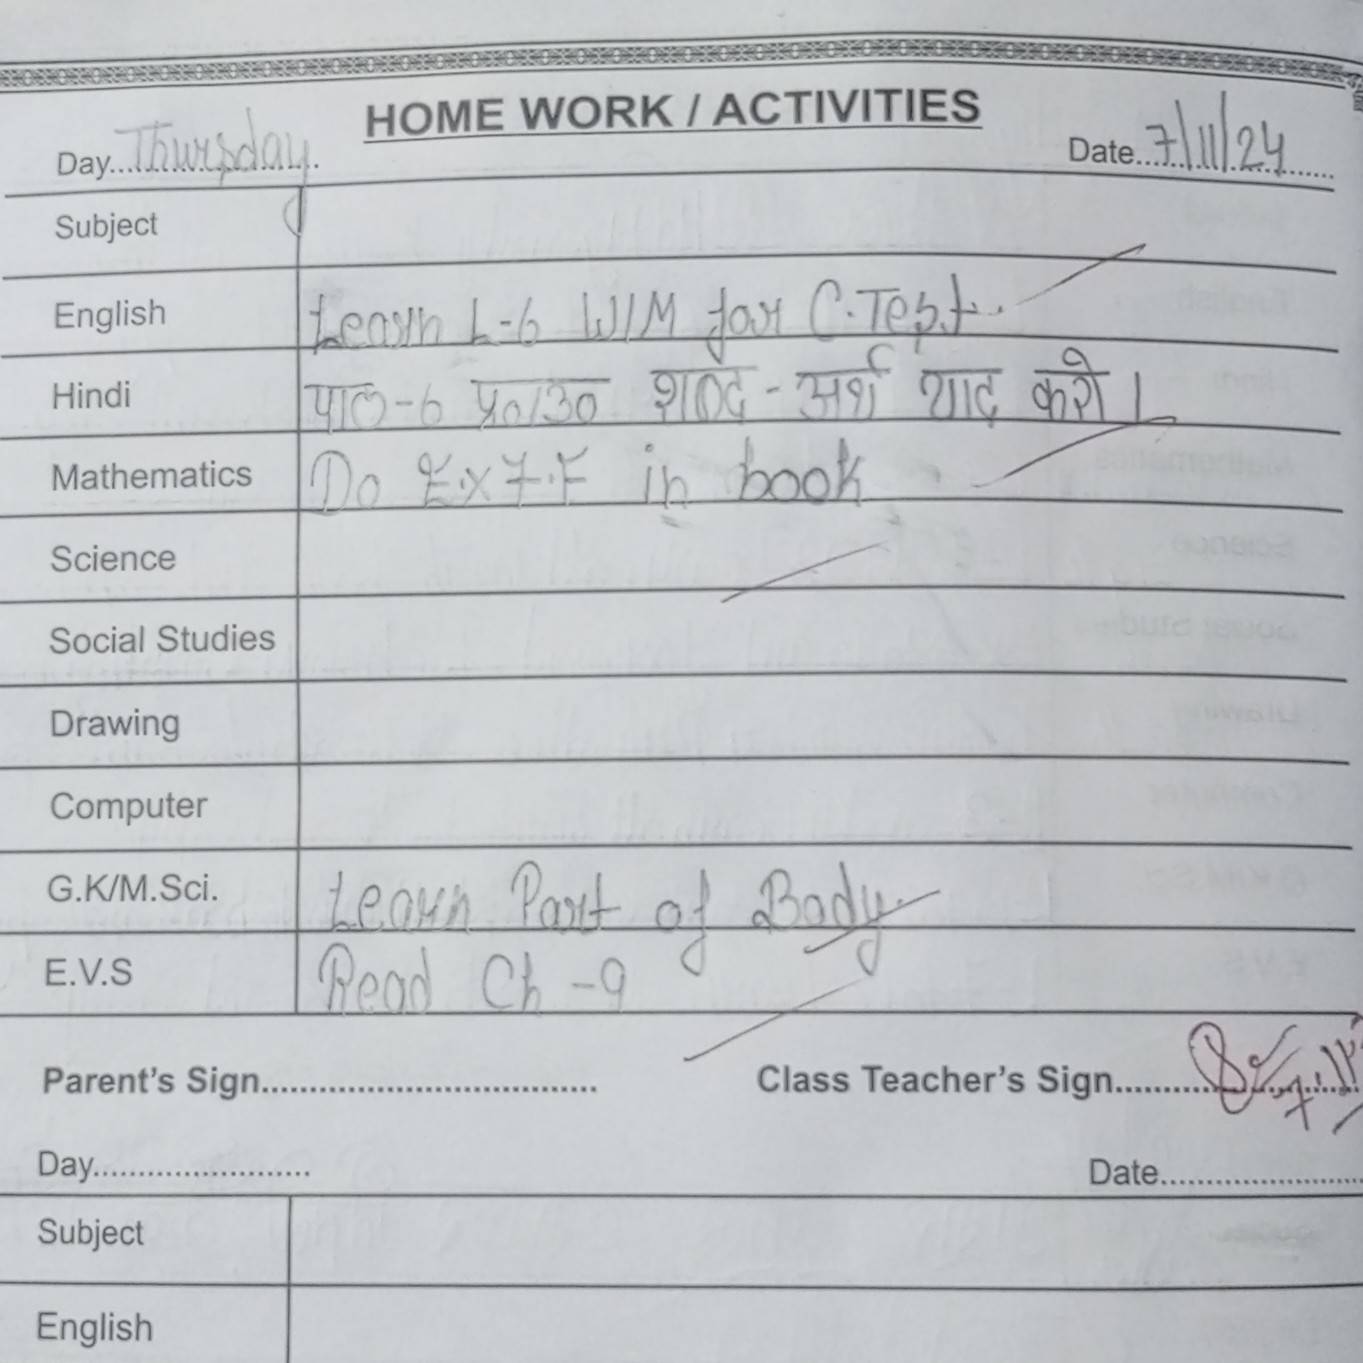 HOME WORK / ACTIVITIES
Day...Thursday. Date...7/11/24
Subject
English Learn L-6 W/M for C.Test.
Hindi पाठ-6 प्र०/उ० शब्द - अर्थ याद करो।
Mathematics Do Ex 7.F in book
Science
Social Studies
Drawing
Computer
G.K/M.Sci. Learn Part of Body.
E.V.S Read Ch -9
Parent's Sign................................... Class Teacher's Sign..........
Day........................ Date......................
Subject
English